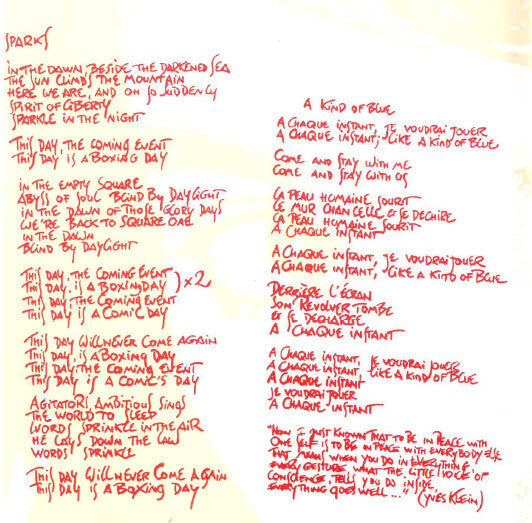 SPARKS
IN THE DAWN, BESIDE THE DARKENED SEA
THE SUN CLIMBS THE MOUNTAIN
HERE WE ARE, AND OH SO SUDDENLY
SPIRIT OF LIBERTY
SPARKLE IN THE NIGHT
THIS DAY, THE COMING EVENT
THIS DAY, IS A BOXING DAY
IN THE EMPTY SQUARE
ABYSS OF SOUL BLIND BY DAYLIGHT
IN THE DAWN OF THOSE GLORY DAYS
WE'RE BACK TO SQUARE ONE
IN THE DAWN
BLIND BY DAYLIGHT
THIS DAY, THE COMING EVENT
THIS DAY, IS A BOXING DAY ) x 2
THIS DAY, THE COMING EVENT
THIS DAY IS A COMIC DAY
THIS DAY WILL NEVER COME AGAIN
THIS DAY, IS A BOXING DAY
THIS DAY, THE COMING EVENT
THIS DAY IS A COMIC'S DAY
AGITATORS, AMBITIOUS SINGS
THE WORLD TO SLEEP
WORDS SPRINKLE IN THE AIR
HE LAYS DOWN THE LAW
WORDS SPRINKLE
THIS DAY WILL NEVER COME AGAIN
THIS DAY IS A BOXING DAY
A KIND OF BLUE
A CHAQUE INSTANT, JE VOUDRAI JOUER
A CHAQUE INSTANT, LIKE A KIND OF BLUE
COME AND STAY WITH ME
COME AND STAY WITH US
ÇA PEAU HUMAINE SOURIT
LE MUR CHANCELLE, & SE DECHIRE
ÇA PEAU HUMAINE SOURIT
A CHAQUE INSTANT
A CHAQUE INSTANT, JE VOUDRAI JOUER
A CHAQUE INSTANT, LIKE A KIND OF BLUE
DERRIÈRE L'ÉCRAN
SON REVOLVER TOMBE
ET SE DECHARGE
A CHAQUE INSTANT
A CHAQUE INSTANT, JE VOUDRAI JOUER
A CHAQUE INSTANT, LIKE A KIND OF BLUE
A CHAQUE INSTANT
JE VOUDRAI JOUER
A CHAQUE INSTANT
"NOW IT JUST KNOWN THAT TO BE IN PEACE WITH
ONE SELF IS TO BE IN PEACE WITH EVERYBODY ELSE
THAT MEANS WHEN YOU DO IN EVERYTHING
EVERY GESTURE WHAT THE LITTLE VOICE OF
CONSCIENCE TELLS YOU DO INSIDE.
EVERYTHING GOES WELL..." (YVES KLEIN)